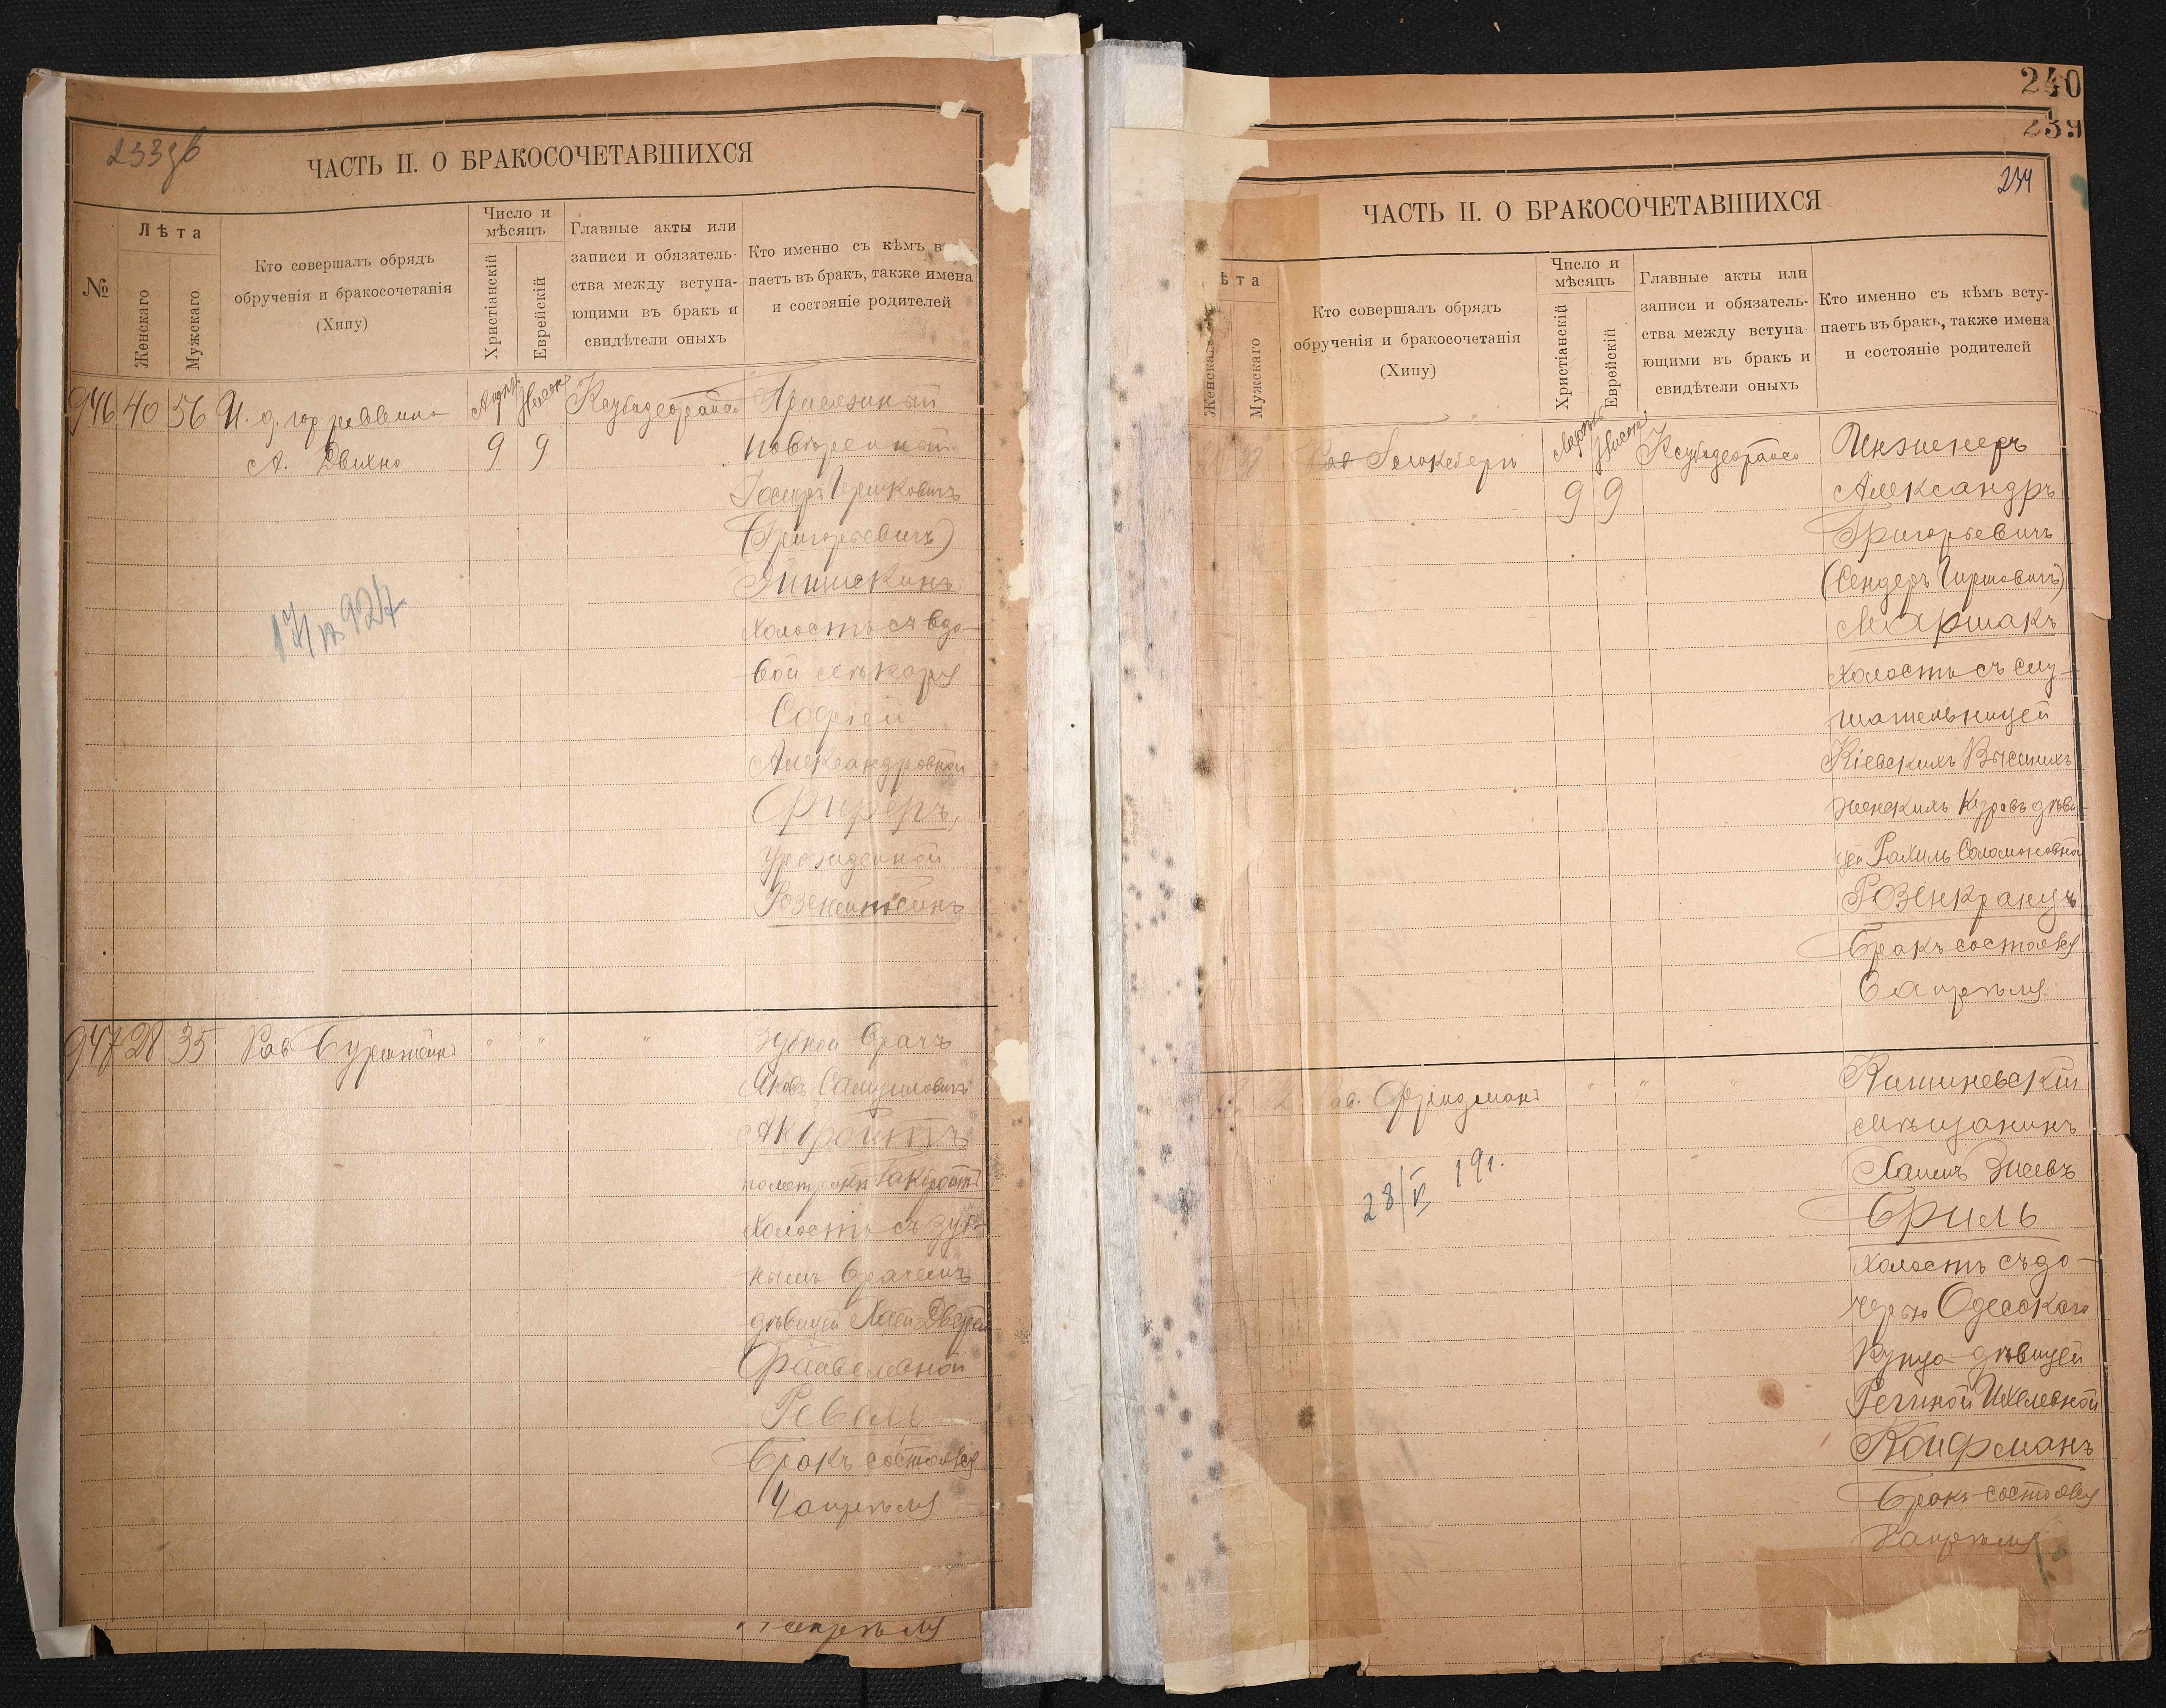 233 об
ЧАСТЬ II. О БРАКОСОЧЕТАВШИХСЯ
№
Лѣта
Женскаго
Мужскаго
Кто совершалъ обрядъ
обрученія и бракосочетанія
(Хипу)
Число и
мѣсяцъ
Христіанскій
Еврейскій
Главные акты или
записи и обязатель-
ства между вступа-
ющими въ бракъ и
свидѣтели оныхъ
Кто именно съ кѣмъ в
паетъ въ бракъ, также имена
и состояніе родителей
946 40 56 И. д. гор раввина
А. Двихно
9 9
Присяжный
повѣренный
Гершковичъ
(Григорьевичъ)
холостъ съ вдо-
вой лѣкаря
Софіей
Александровной
Фиреръ,
урожденной
Розенштейнъ
947 28 35 Рав
" " "
Зубной врачъ
Яковъ Самуиловичъ
Акройтъ
холостъ съ зуб-
нымъ врачемъ
дѣвицей Хаей Двейрей
Файвелевной
Ревель
Бракъ состоялся
4 апрѣля
апрѣля
240
239
234
ЧАСТЬ II. О БРАКОСОЧЕТАВШИХСЯ
ѣта
Женскаго
Мужскаго
Кто совершалъ обрядъ
обрученія и бракосочетанія
(Хипу)
Число и
мѣсяцъ
Христіанскій
Еврейскій
Главные акты или
записи и обязатель-
ства между вступа
ющими въ бракъ и
свидѣтели оныхъ
Кто именно съ кѣмъ всту-
паетъ въ бракъ, также имена
и состояніе родителей
38
9 9
Инженеръ
Александръ
Григорьевичъ
(Сендеръ Гиршовичъ)
Маршакъ
холостъ съ слу-
шательницей
Кіевскихъ Высшихъ
женскихъ курсовъ дѣви-
цей Рахиль Соломоновной
Розенкранцъ
Бракъ состоялся
6 апрѣля
Фридманъ
" " "
28/V 191.
Кишиневскій
мѣщанинъ
Хаимъ
Бриль
холостъ съ до-
черью Одесскаго
купца дѣвицей
Региной Ихелевной
Койфманъ
Бракъ состоялся
апрѣля